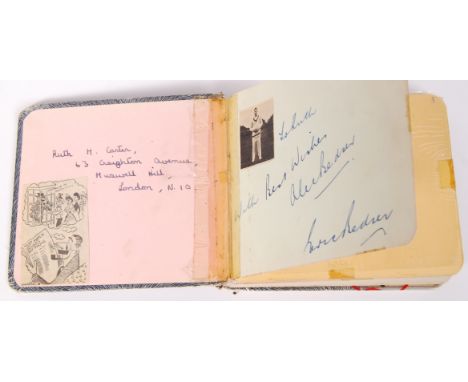 Ruth M. Carter,
63 Creighton Avenue,
Muswell Hill,
London, N.10
To Ruth
With Best Wishes
Alec Bedser
Eric Bedser